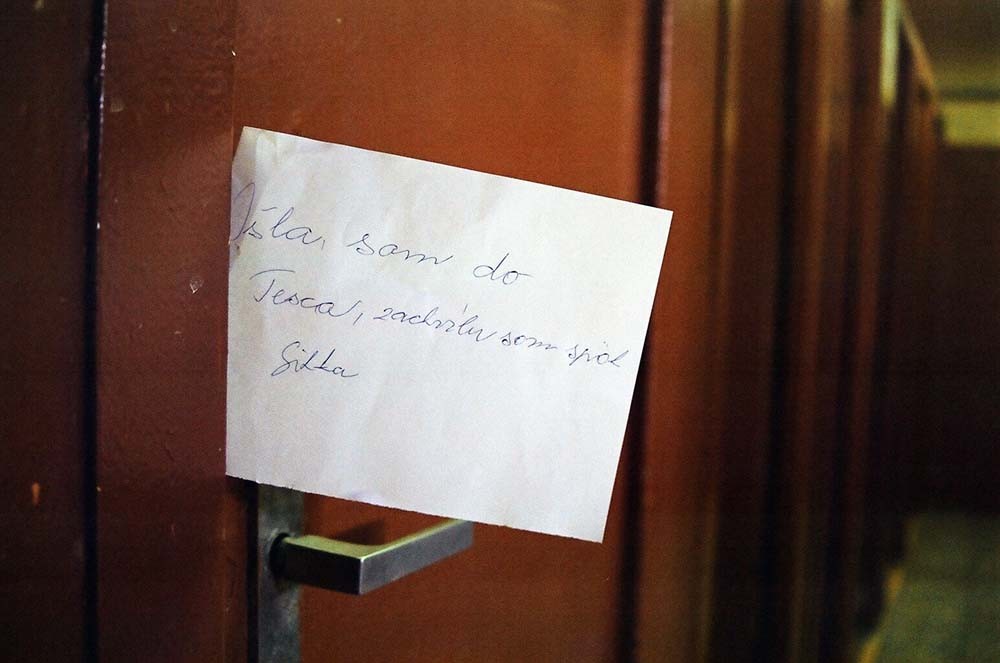 Išla som do
Tesca, zachvíľu som späť
Gitka